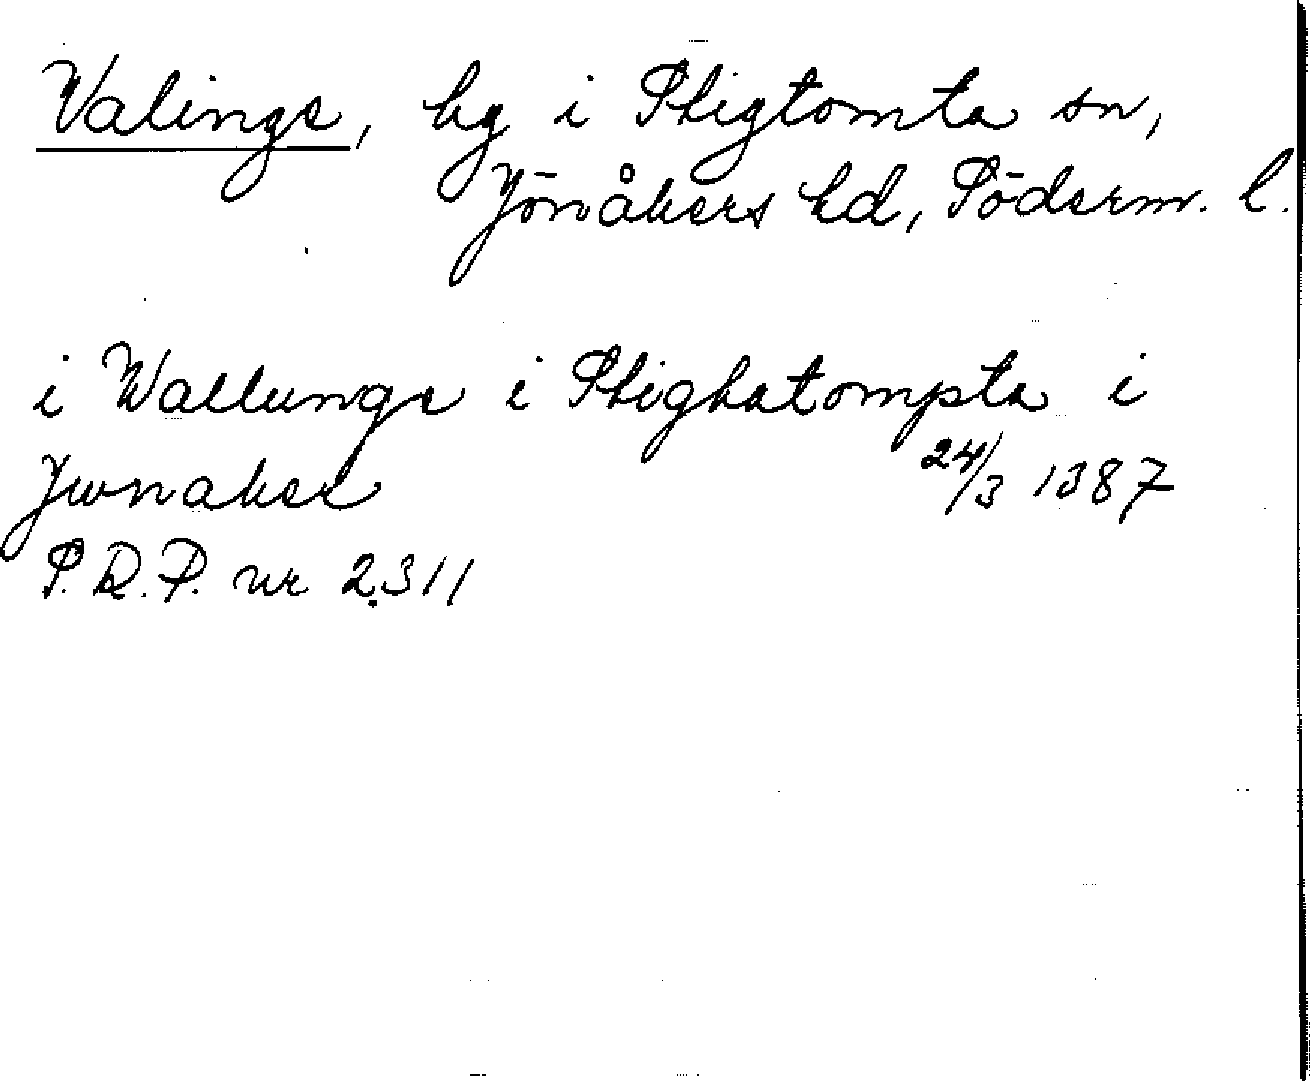 Valinge, hg i Stigtomta sn,
Jönåkers hd, Söderm. l.
i Wallunge i Stighatompta i
Jwnaker 24/3 1387
S.R.P. nr 2311